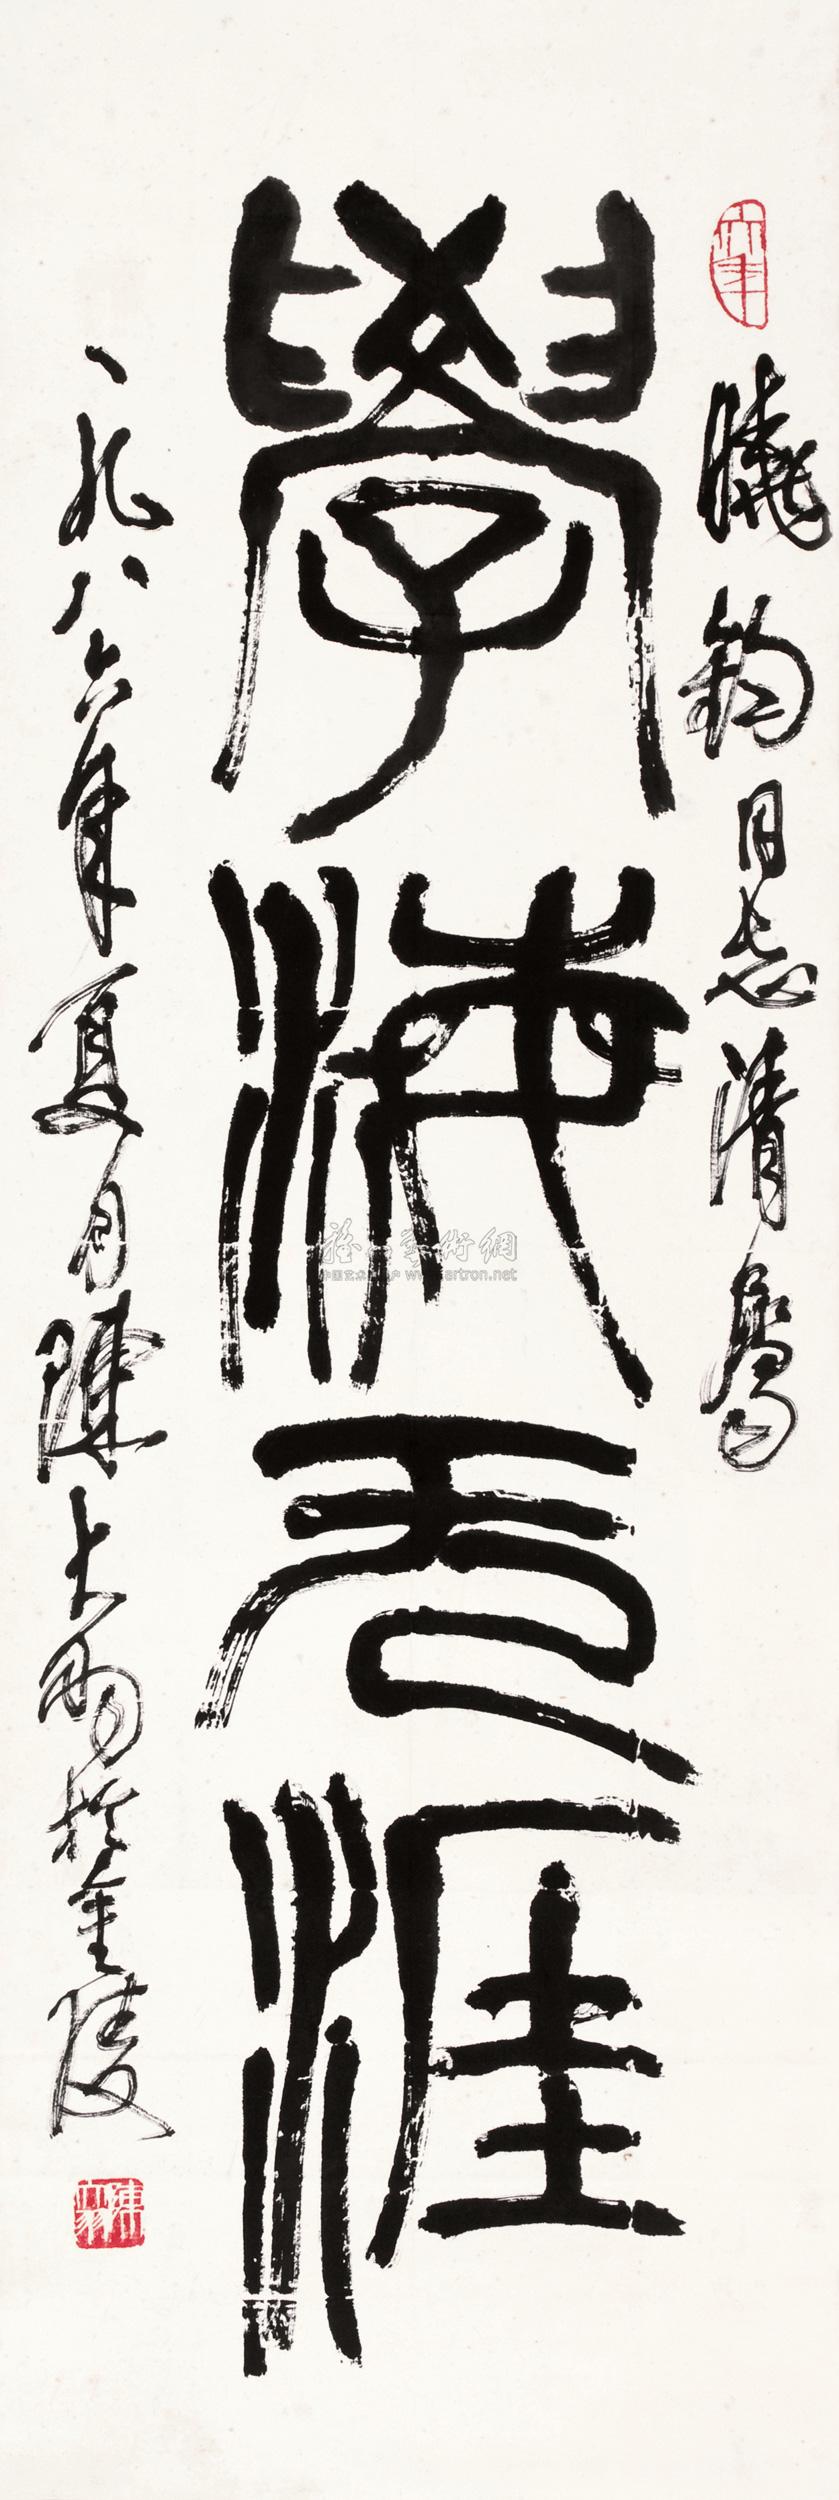 曉鈞同志清屬
學海无涯
一九八六年夏月陳大羽於金陵
陳大羽
www.artron.net